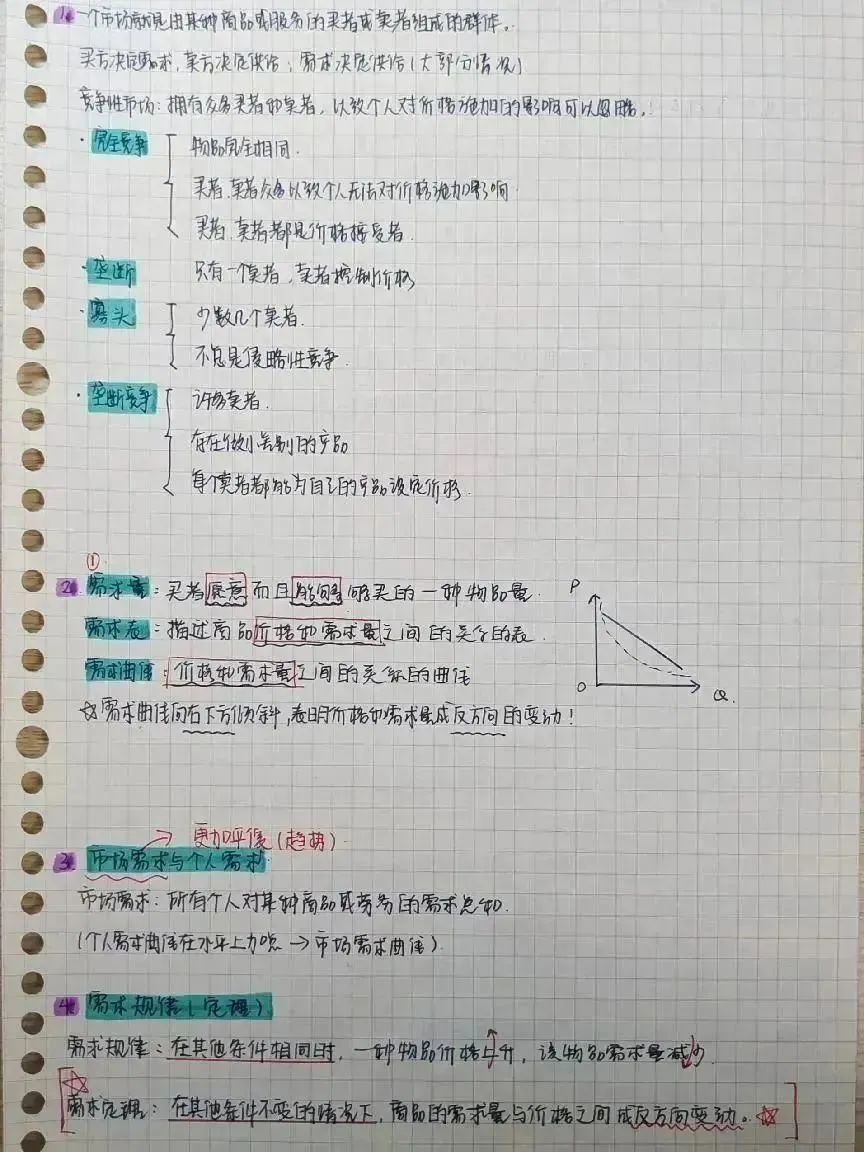 1. 一个市场就是由某种商品或服务的买者或卖者组成的群体。
买方决定需求，卖方决定供给；需求决定供给（大部分情况）
竞争性市场：拥有众多买者和卖者，以致个人对价格施加的影响可以忽略。
·完全竞争 物品完全相同.
买者、卖者众多以致个人无法对价格施加影响
买者、卖者都是价格接受者.
·垄断 只有一个卖者，卖者控制价格
·寡头 少数几个卖者.
不总是侵略性竞争.
·垄断竞争 许多卖者.
存在微小差别的产品
每个卖者都能为自己的产品设定价格.
①
2. 需求量：买者愿意而且能够购买的一种物品量.
需求表：描述商品价格和需求量之间的关系的表.
需求曲线：价格和需求量之间的关系的曲线
☆需求曲线向右下方倾斜，表明价格和需求量成反方向的变动！
P
O
Q.
→更加平缓（趋势）
3. 市场需求与个人需求
市场需求：所有个人对某种商品或劳务的需求总和.
（个人需求曲线在水平上加总→市场需求曲线）.
4. 需求规律（定理）
需求规律：在其他条件相同时，一种物品价格上升，该物品需求量减少.
☆需求定理：在其他条件不变的情况下，商品的需求量与价格之间成反方向变动。☆